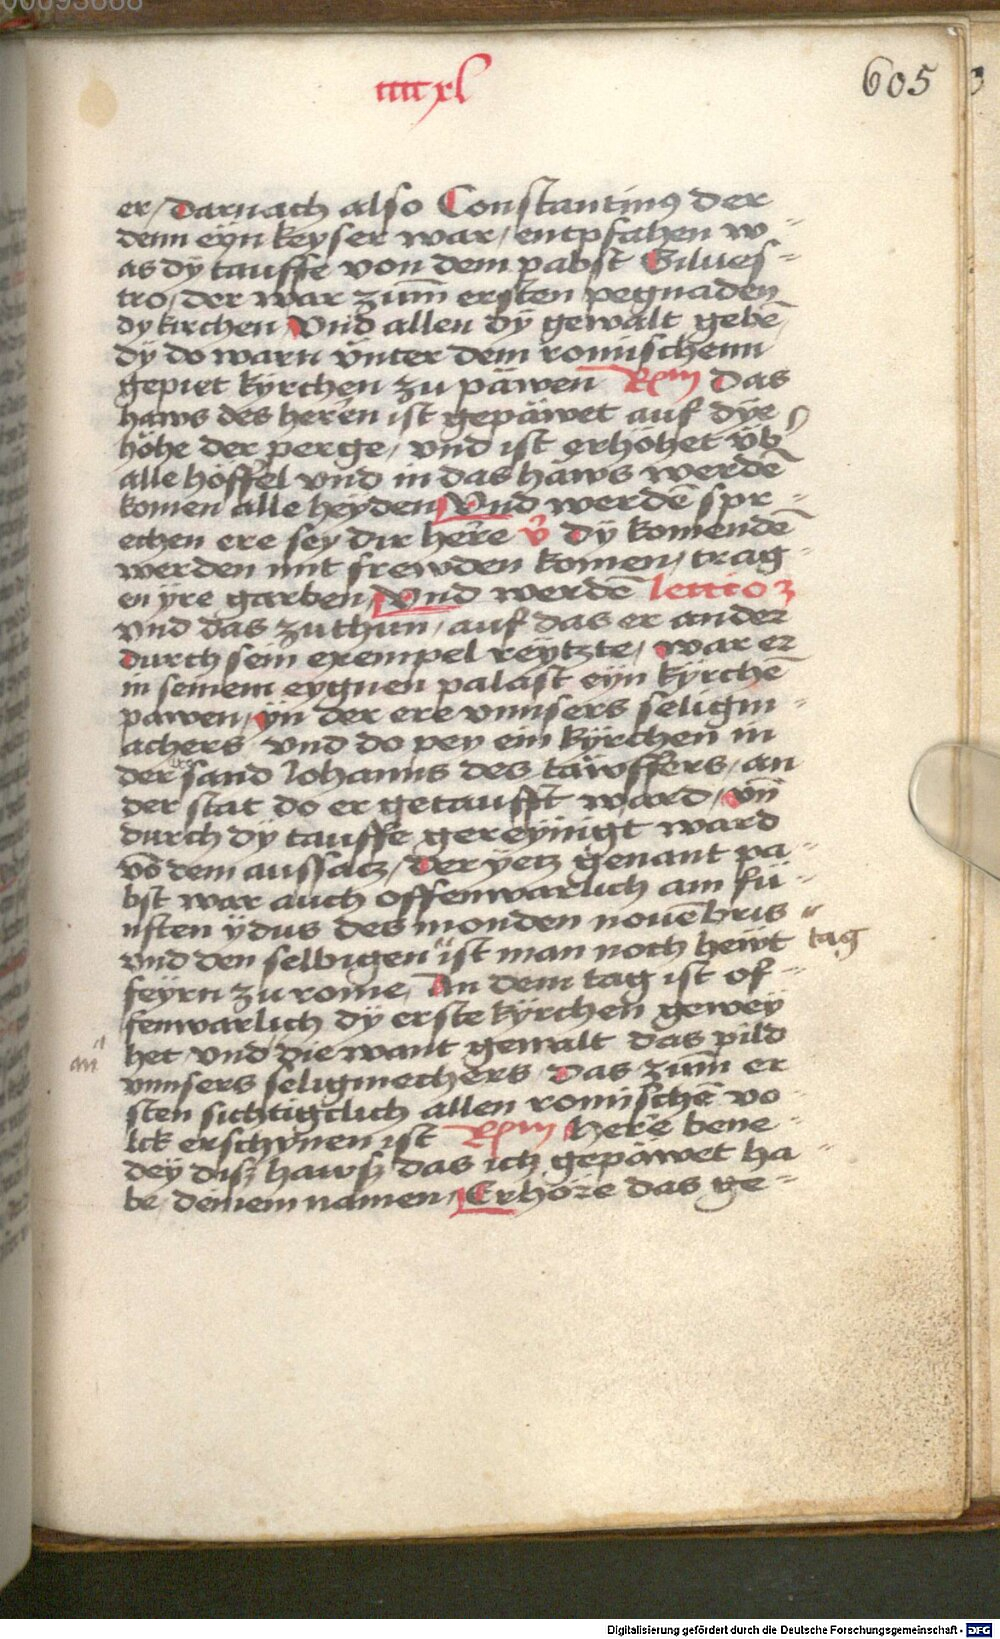 00093668
ccccxl
605
er / Darnach also Constantinꝰ der
denn eyn keyser war / entpfahen w-
as dy tauffe von dem pabst Siluesz-
tro / der war zum̄ ersten pegnaden
dy kirchen Vnd allen dÿ gewalt gebē
dÿ do warn vnter dem romischenn
gepiet kÿrchen zu päwen Rm Das
haws des herren ist gepäwet auf dÿe
höhe der perge / vnd ist erhöhet vb̉
alle höffel vnd in das haws werdē
komen alle heyden Vnd werdē spr-
echen ere sey dir herre v̉ Dÿ komendē
werden mit frewden komen / trag-
en ÿre garben / Vnd werdē lectio 3
vnd das zuthun / auf das er ander
durch sein exempel reÿtzte / war er
in seinem eygnen palast eÿn kÿrchē
pawen / ÿn der ere vnnsers seligm-
achers / vnd do pey ein kÿrchen in
der ere sand Iohanns des täwffers / an
der stat do er getaufft ward / vn̄
durch dÿ tauffe gereÿnigt ward
vō dem aussatz / Der ÿetz genant pa-
bst war auch offenwarlich am fü-
nften ÿdus des monden nouēbris
vnd den selbigen ist man noch hewt tag
feyrn zu rome / An dem tag ist of-
fenwarlich dÿ erste kÿrchen gewey
het / vnd die want gemalt das pild
an
vnnsers seligmechers / Das zum̄ er
sten sichtigclich allen romischē vo-
lck erschÿnen ist Rm herre bene-
dey disz hawsz das ich gepäwet ha-
be deinem namen / Erhöre das ge-
Digitalisierung gefördert durch die Deutsche Forschungsgemeinschaft - DFG